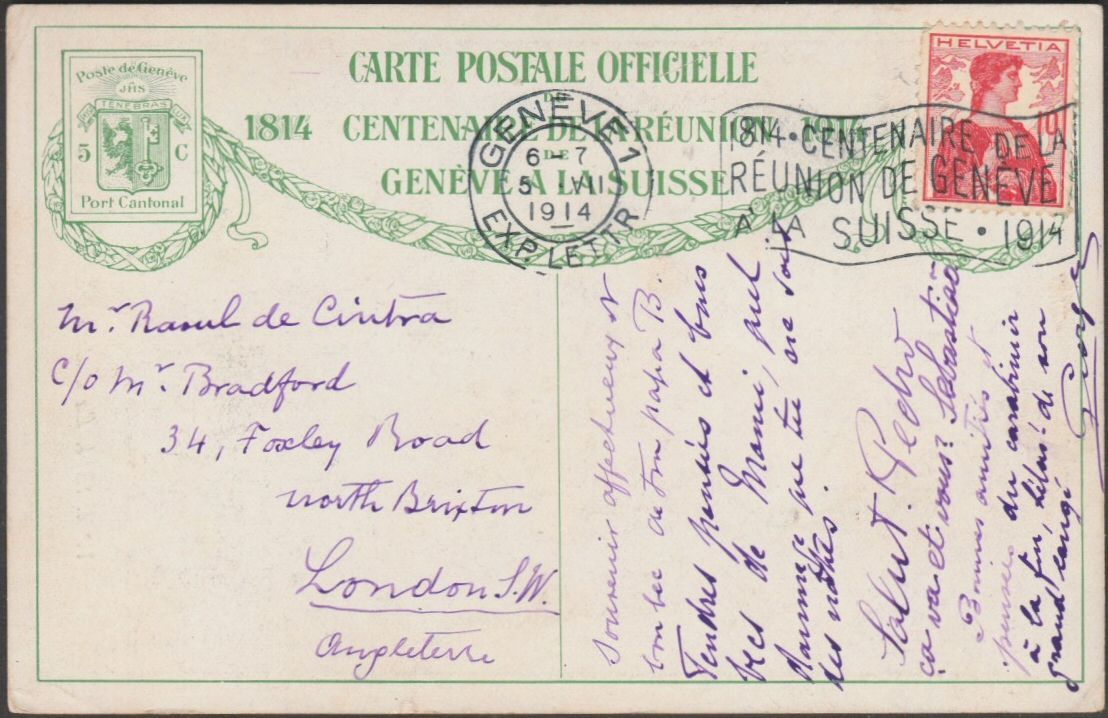 Poste de Genève
JHS
POST TENEBRAS LUX
5 C
Port Cantonal
CARTE POSTALE OFFICIELLE
DU
1814 CENTENAIRE DE LA RÉUNION 1914
DE
GENÈVE À LA SUISSE
GENÈVE 1
6-7
5 VII
1914
EXP. LETTR.
1814 • CENTENAIRE DE LA
RÉUNION DE GENÈVE
A' LA SUISSE • 1914
HELVETIA
10
Mr. Raoul de Cintra
c/o Mr. Bradford
34, Foxley Road
North Brixton
London S.W.
Angleterre
Souvenir affectueux et
bon bec de ton papa B.
Tendres pensées et bons
becs de Mamie,
que tu are soit
des nôtres.
Salut Pedro
ça va et vous? Sebastiao
Bonnes amitiés et
pensées du carabinier
à la fin, hélas! de son
grand congé